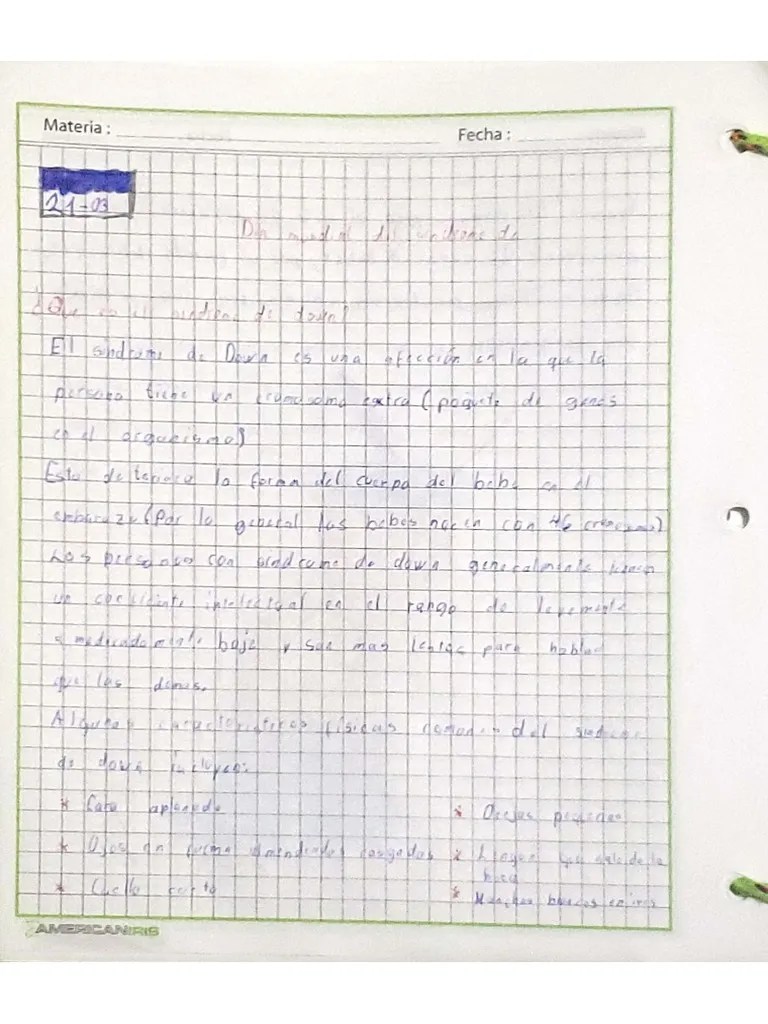 Materia:
Fecha:
21-03
Dia mundial del sindrome de
¿Que es el sindrome de down?
El sindrome de Down es una afección en la que la
persona tiene un cromosoma extra (paquete de genes
en el organismo)
Esto la forma del cuerpo del bebe en el
embarazo (Por lo general los bebes nacen con 46 )
Las personas con sindrome de down generalmente tienen
un intelectual en el rango de levemente
a baja y son mas lentas para hablar
que las demas.
Algunas caracteristicas físicas comunes del sindrome
de down incluyen:
* Cara aplanada
* Orejas pequeñas
* Ojos en forma rasgados
* Lengua que sale de la
boca
* Cuello corto
* Manchas blancas en iris
AMERICANIRIS